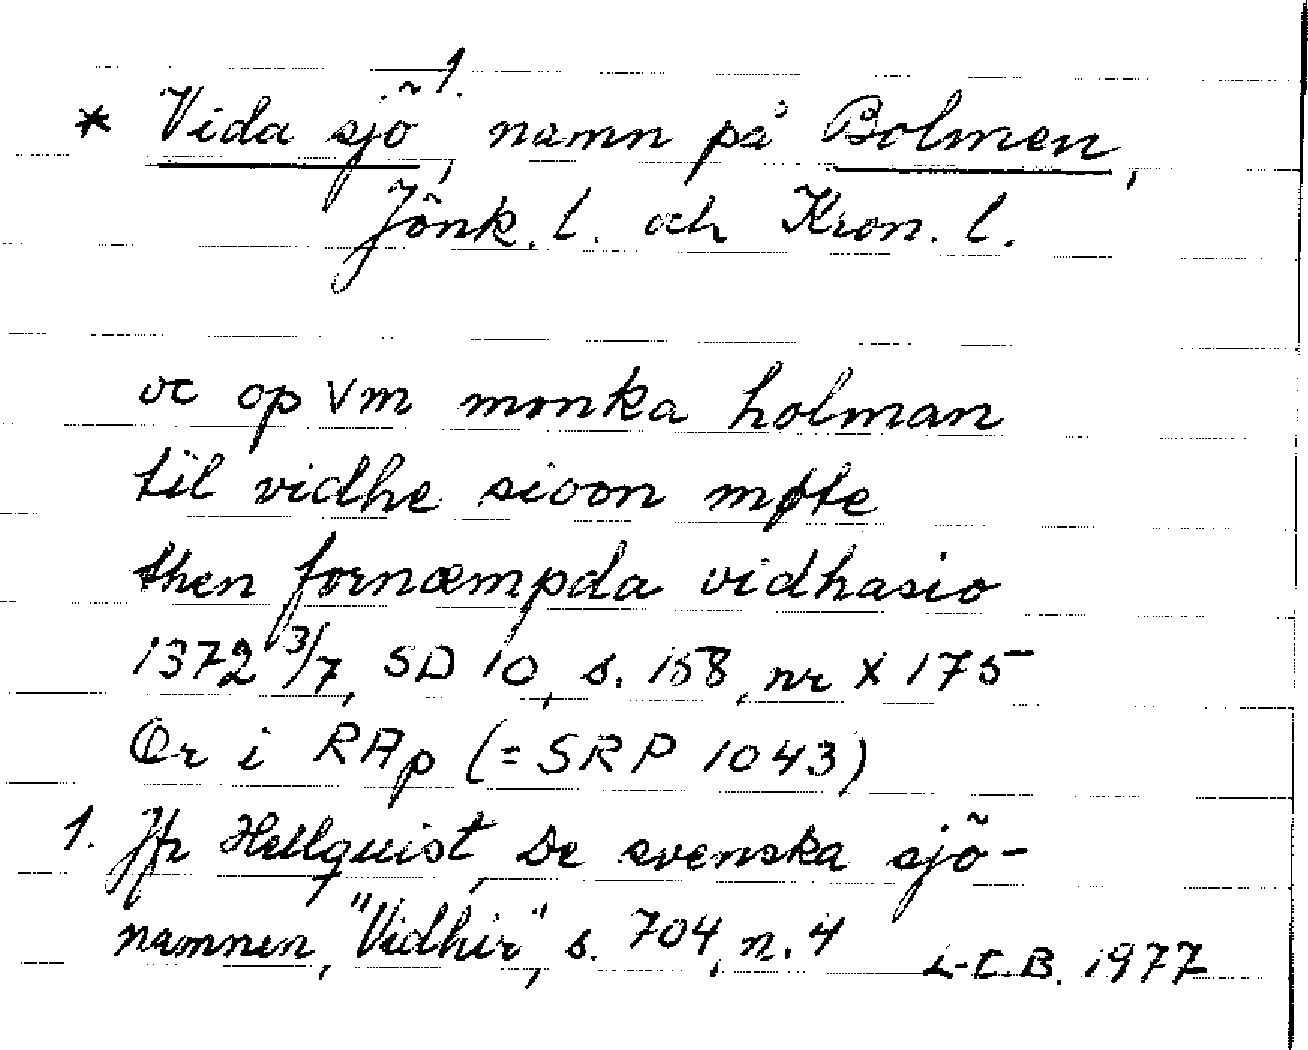 * Vida sjö 1., namn på Bolmen,
Jönk. l. och Kron. l.
oc op vm monka holman
til vidhe sioon møte
then fornæmpda vidhasio
1372 3/7, SD 10, s. 158, nr X 175
Or i RAp (= SRP 1043)
1. Jfr Hellquist, De svenska sjö-
namnen, "Vidhir", s. 704, n. 4
L-C.B. 1977